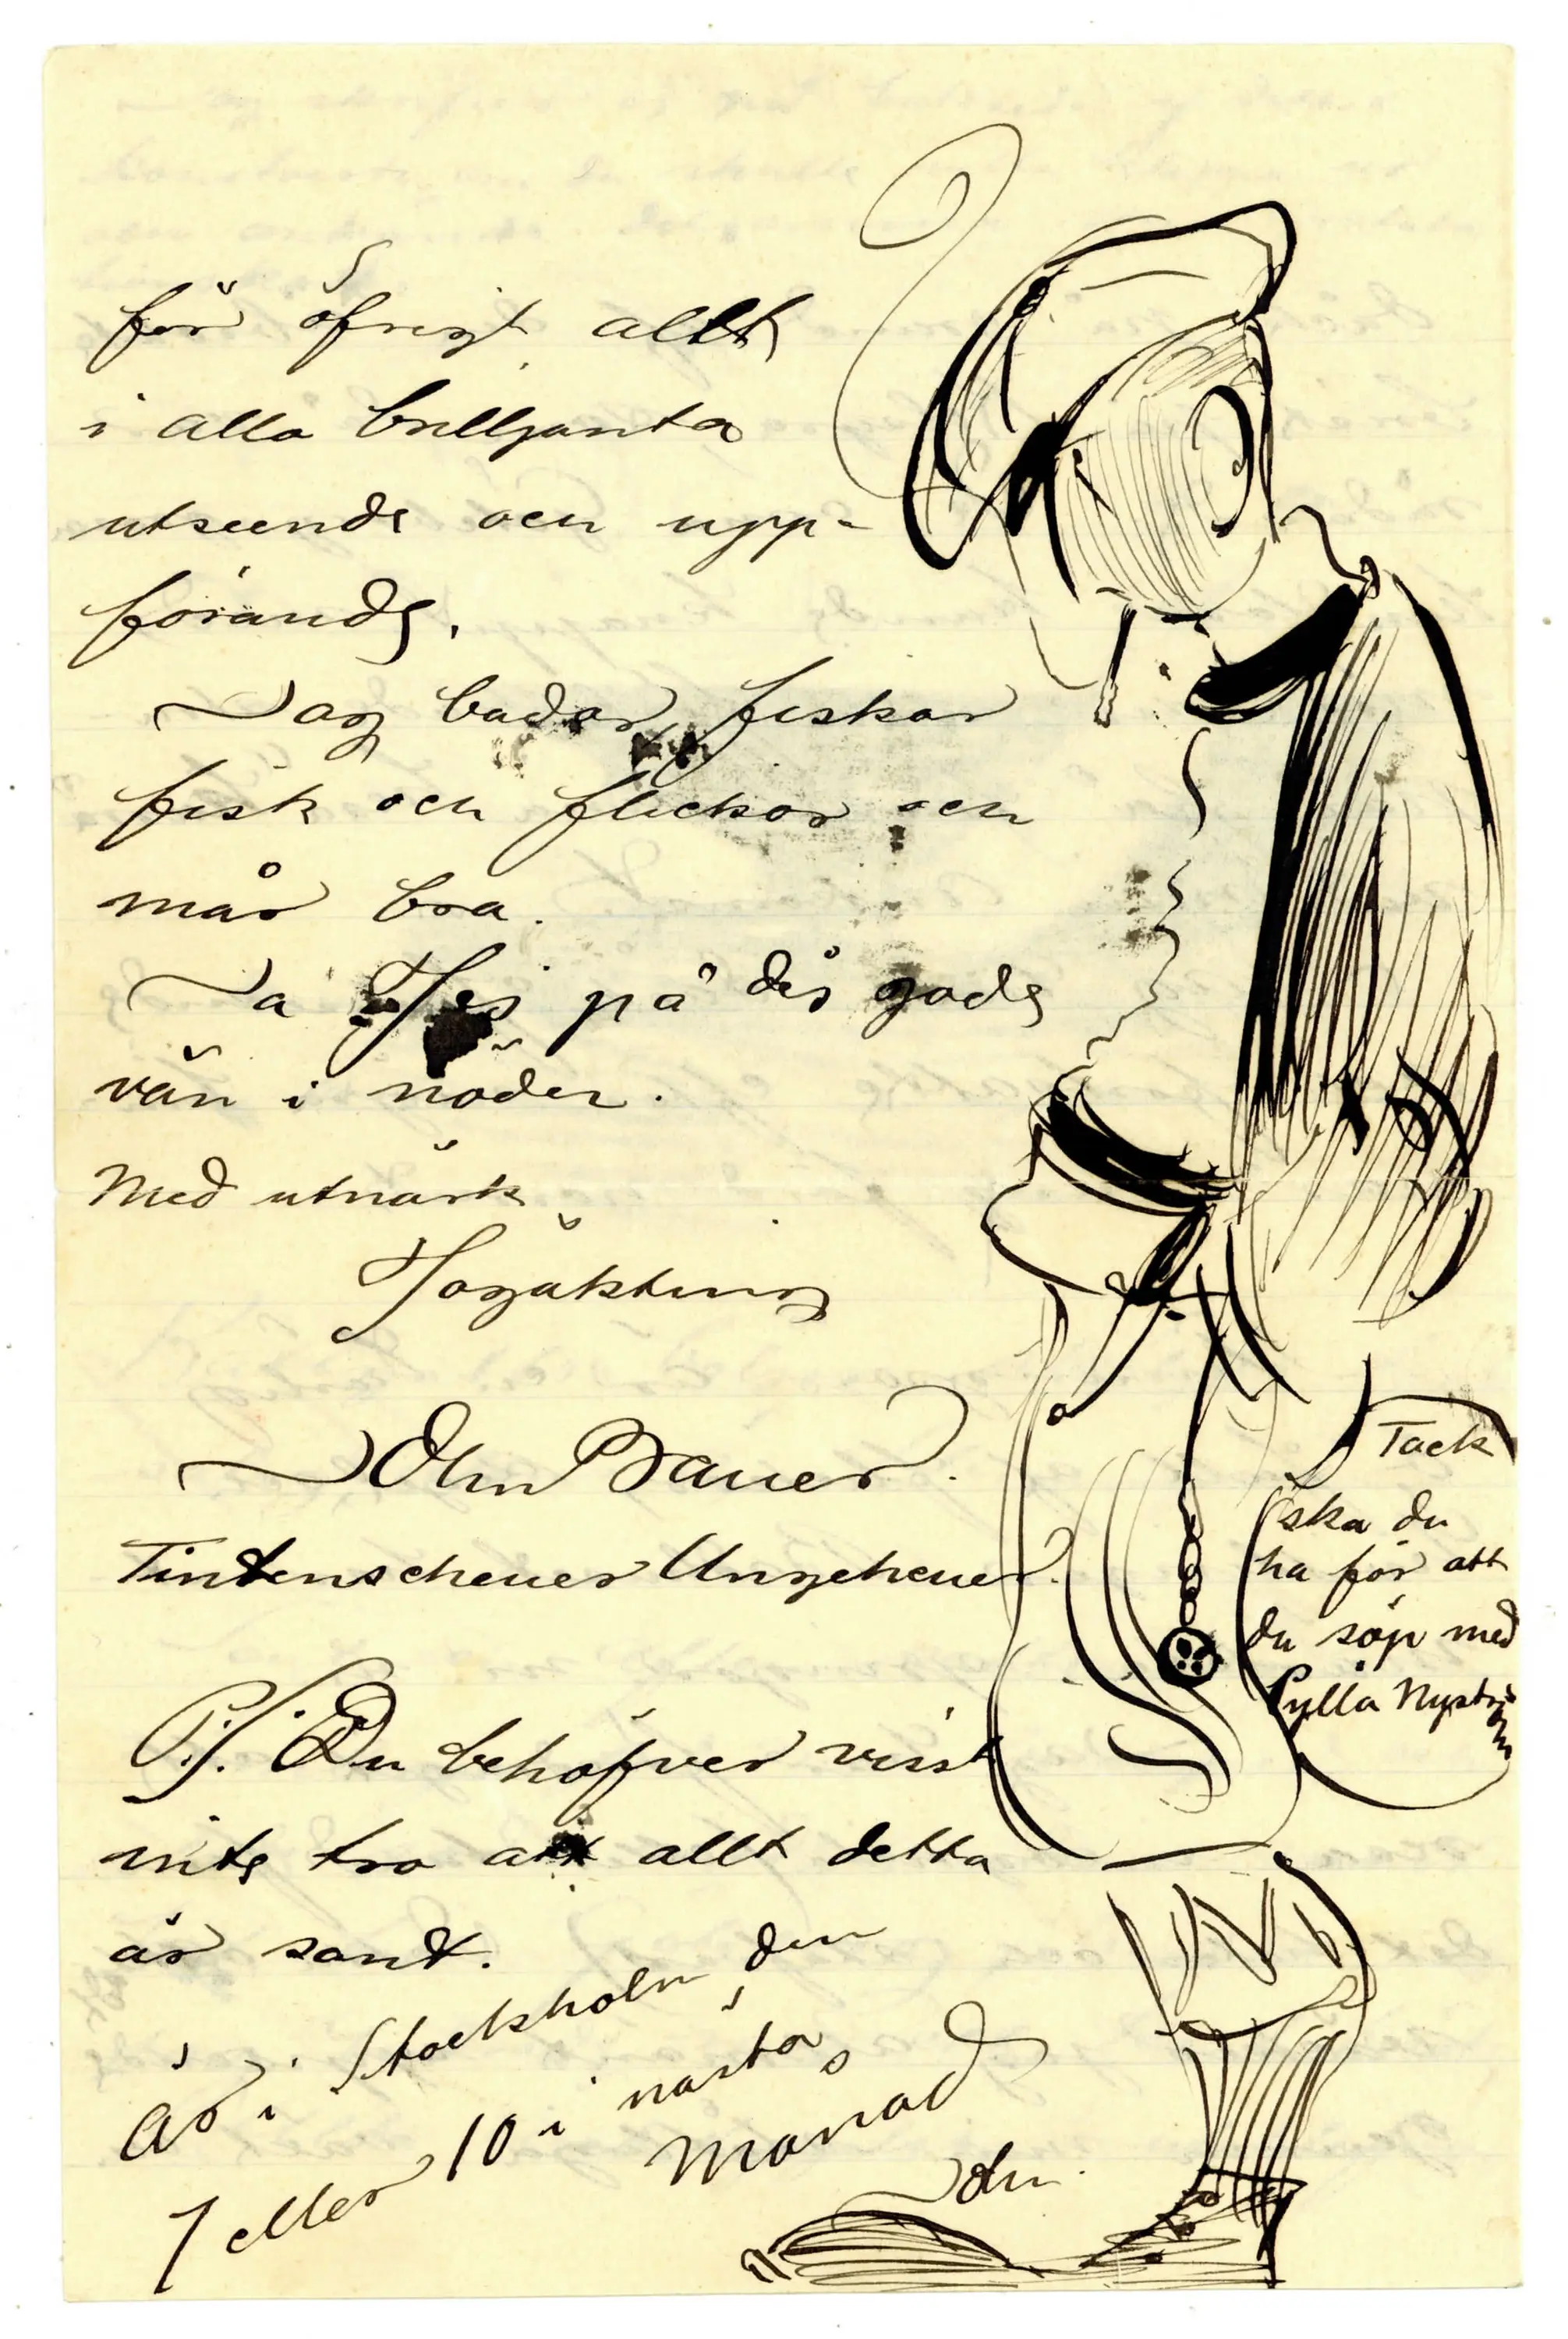 för öfrigt allt
i alla brilljanta
utseende och upp-
förande.
Jag badar, fiskar
fisk och flickor och
mår bra.
Ja Hej på dig gode
vän i nöden.
Med utmärk
Högaktning
John Bauer.
Tintenscheuer Ungeheuer.
P.S. Du behöfver visst
inte tro att allt detta
är sant.
Är i Stockholm den
1 eller 10 i nästa
månad
John.
Tack
ska du
ha för att
du söp med
Pylla Nyström